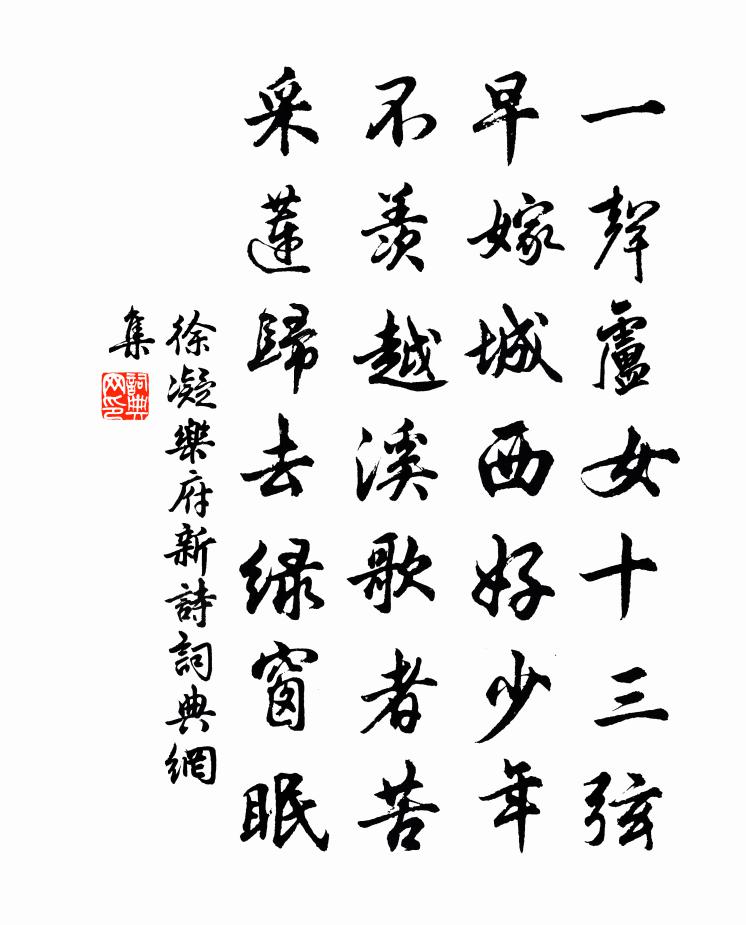 一聲盧女十三弦
早嫁城西好少年
不羨越溪歌者苦
采蓮歸去绿窗眠
徐凝樂府新詩詞典網
集
詞典
网印